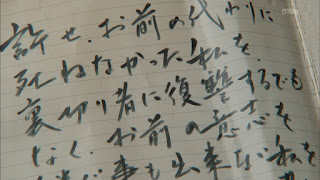 許せ、お前の代わりに
死ねなかった私を。
裏切り者に復讐するでも
なく、お前の意志を
事も出来ない私を